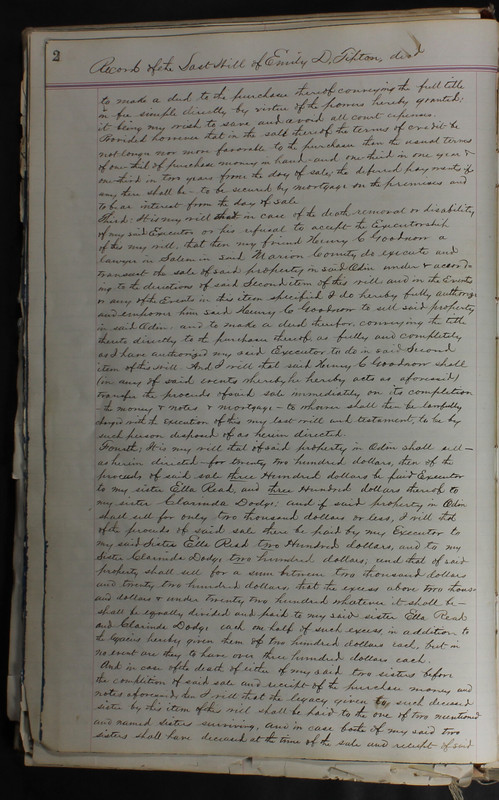 2
Record of the Last Will of Emily D. Tipton, decd
to make a deed to the purchaser thereof conveying the full title
in fee simple directly by virtue of the powers hereby granted;
it being my wish to save and avoid all court expenses.
Provided however that in the sale thereof the terms of credit be
not longer nor more favorable to the purchaser than the usual terms
of one third of purchase money in hand and one third in one year &
one third in two years from the day of sale; the deferred payments if
any there shall be - to be secured by mortgage on the premises and
to bear interest from the day of sale
Third: It is my will that in case of the death, removal or disability
of my said Executor or his refusal to accept the Executorship
of this my will, that then my friend Henry C Goodnow a
lawyer in Salem in said Marion County do execute and
transact the sale of said property in said Odin under & accord-
ing to the directions of said Second item of this will and in the Events
or any of the Events in this item specified I do hereby fully authorize
and empower him said Henry C Goodnow to sell said property
in said Odin, and to make a deed therefor, conveying the title
thereto directly to the purchaser thereof as fully and completely
as I have authorized my said Executor to do in said Second
item of this will - And I will that said Henry C Goodnow shall
(in any of said events whereby he hereby acts as aforesaid)
transfer the proceeds of said sale immediately on its completion
- the money & notes & mortgage - to whoever shall then be lawfully
charged with the execution of this my last will and testament, to be by
such person disposed of as herein directed.
Fourth; It is my will that if said property in Odin shall sell -
as herein directed - for twenty two hundred dollars, then of the
proceeds of said sale three Hundred dollars be paid Executor
to my sister Ella Read and three Hundred dollars thereof to
my sister Clarinda Dodge; and if said property in Odin
shall sell for only two thousand dollars or less, I will that
of the proceeds of said sale there be paid by my Executor to
my said Sister Ella Read two Hundred dollars, and to my
Sister Clarinda Dodge two hundred dollars; and that if said
property shall sell for a sum between two thousand dollars
and twenty two hundred dollars, that the excess above two thous-
and dollars & under twenty two hundred whatever it shall be -
shall be equally divided and paid to my said sister Ella Read
and Clarinda Dodge each one half of such excess, in addition to
the legacies hereby given them of two hundred dollars each, but in
no event are they to have over three hundred dollars each.
And in case of the death of either of my said two sisters before
the completion of said sale and receipt of the purchase money and
notes aforesaid, then I will that the legacy given by such deceased
sister by this item of this will shall be paid to the one of two mentioned
and named sisters surviving, and in case both of my said two
sisters shall have deceased at the time of the sale and receipt of said